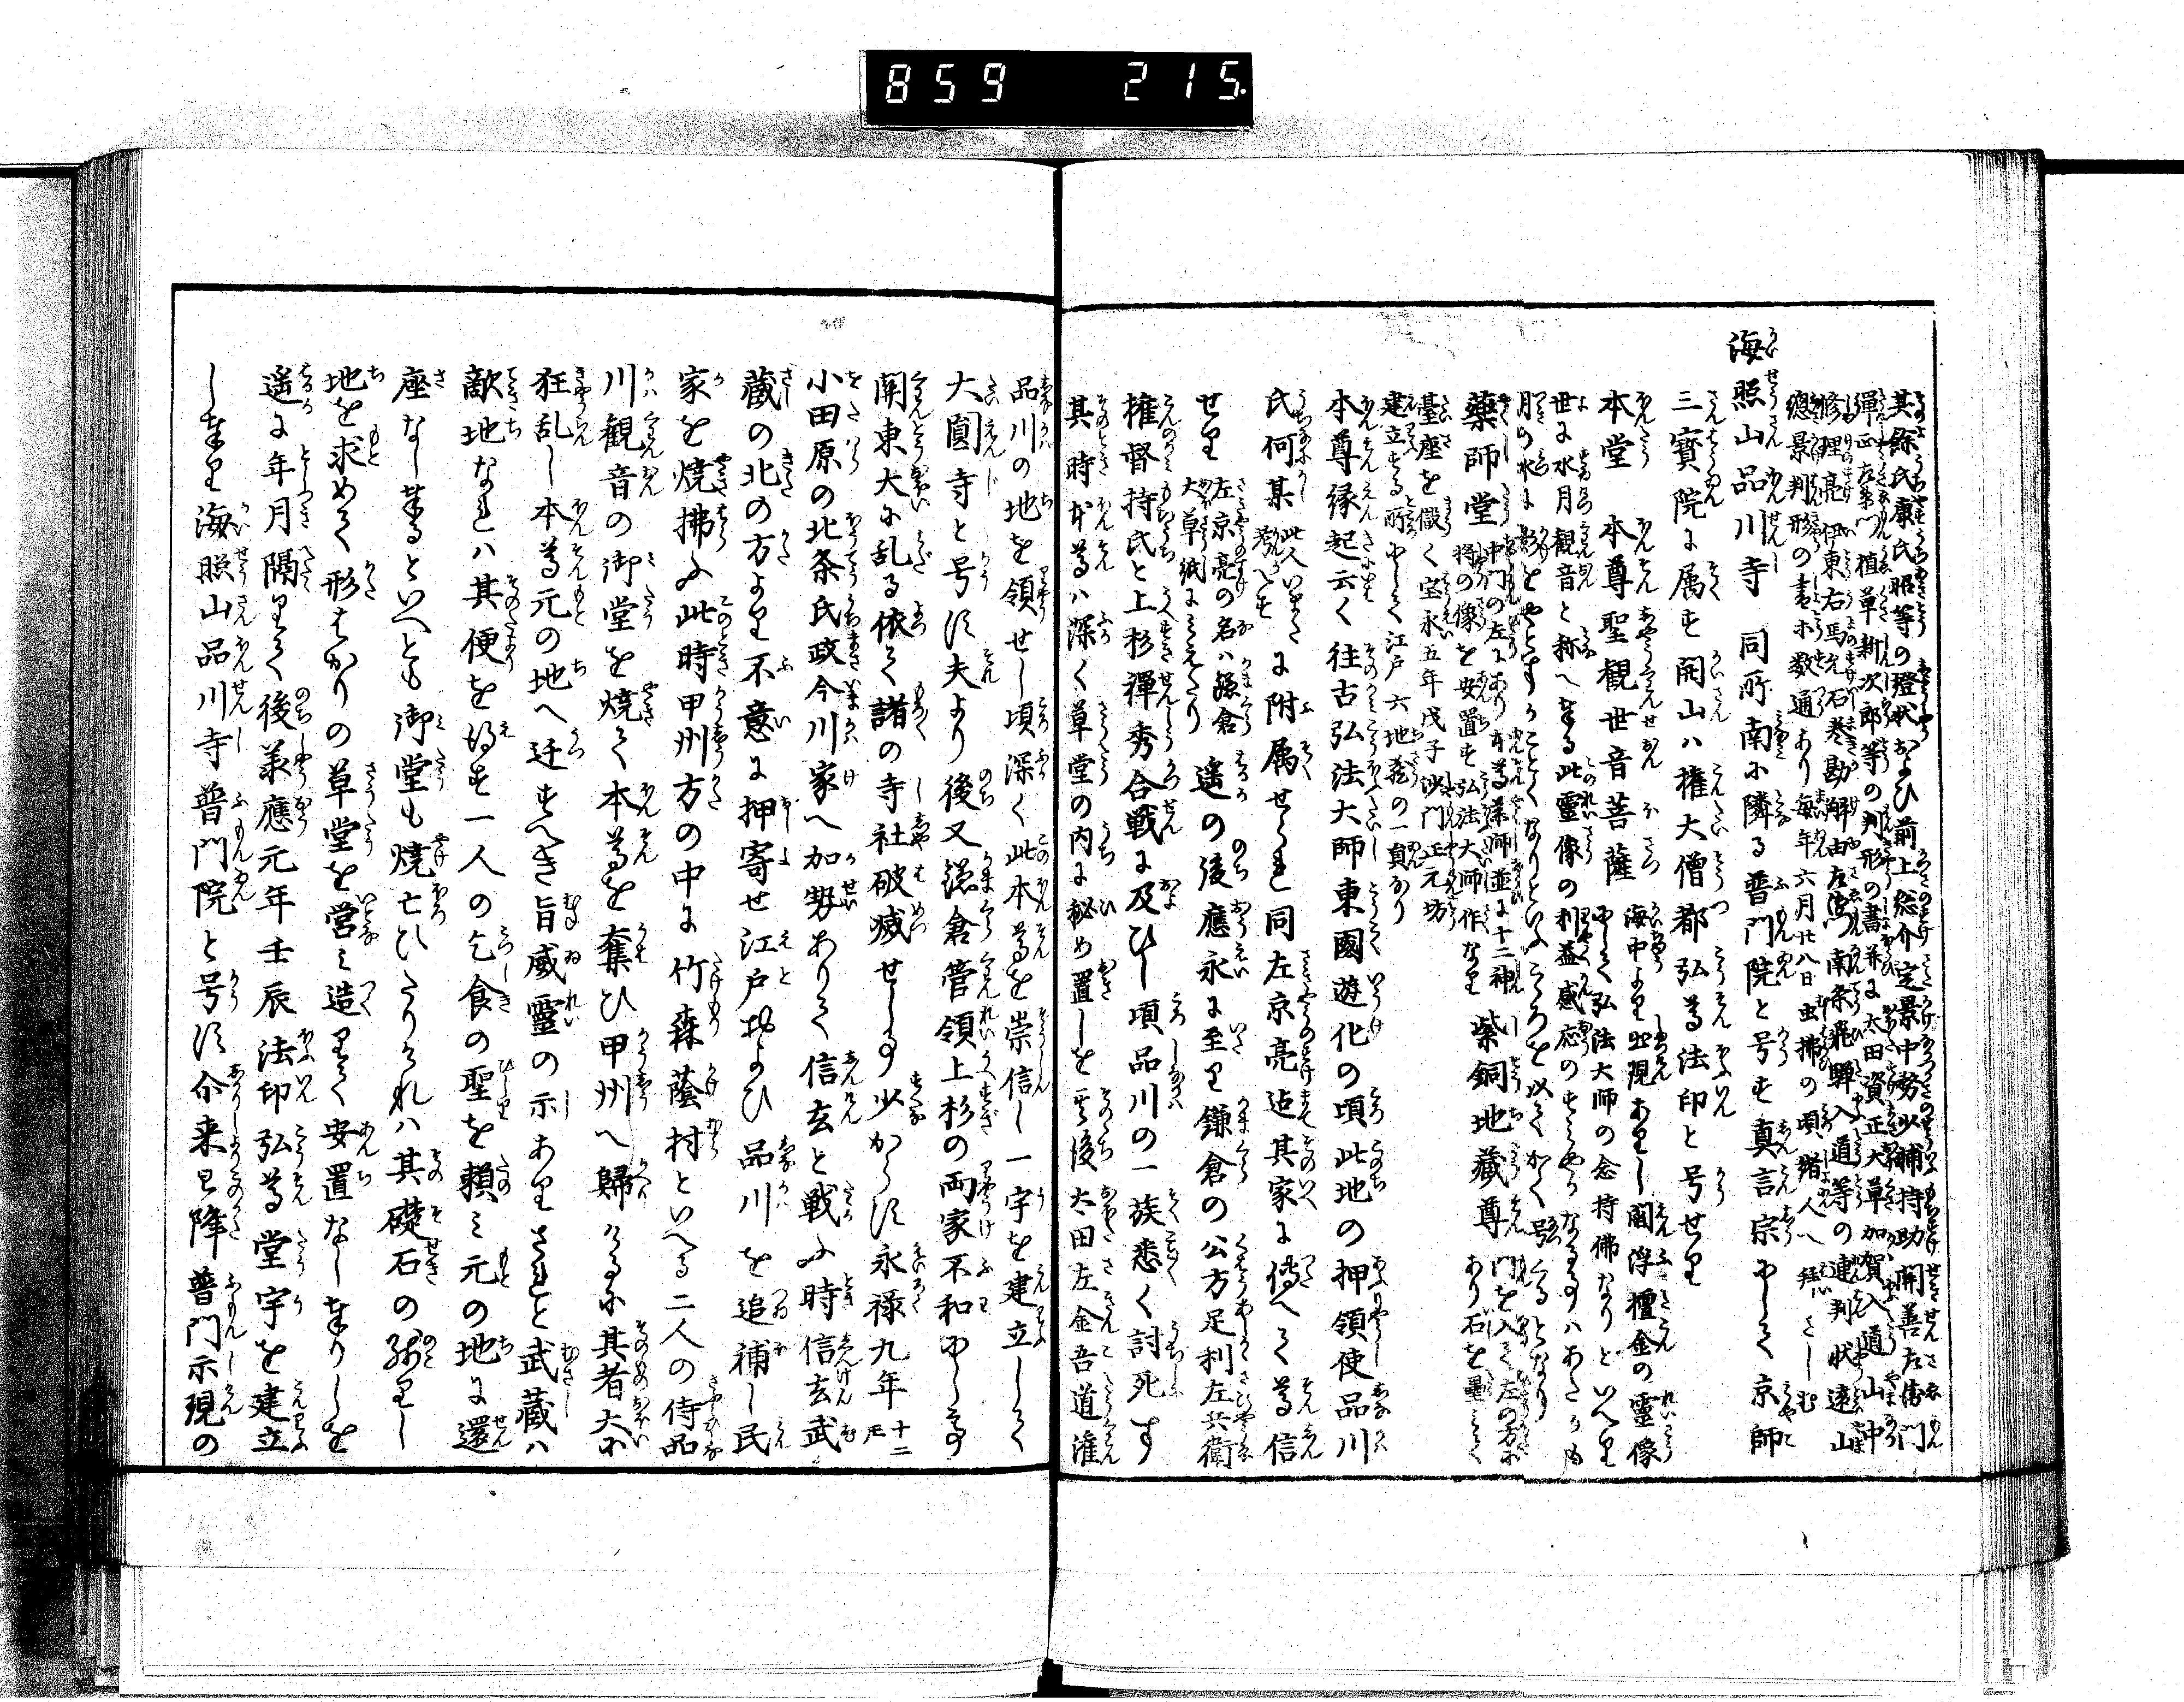 859 215.
其餘氏康氏照等の證状および前上総介定景中務少輔持助開善左衛門
弾正左衛門植草新次郎等の判形の書并に太田資正大草加賀入道山中
修理亮伊東右馬允石巻勘解由左衛門南条飛騨入道等の連判状遠山
總景判形の書都て数通あり毎年六月廿八日虫拂の頃諸人へ拝さしむ
海照山品川寺 同所南に隣る普門院と号す真言宗にして京師
三寳院に属す開山ハ権大僧都弘尊法印と号せり
本堂 本尊聖観世音菩薩 海中より出現ありし閻浮檀金の霊像
にして弘法大師の念持佛なりといへり
世に水月観音と称へ奉る此靈像の利益感應のすみやかなる事ハあたかも
月の水に影をやとすかことくなりといふこころを以てかく号くるとなり
薬師堂 中門の左にあり本尊薬師並に十二神
将の像を安置す弘法大師作なり 紫銅地蔵尊 門を入て左の方に
あり石を畳みて
臺座を儲く宝永五年戊子沙門正元坊
建立する所にして江戸六地蔵の一員なり
本尊縁起云く往古弘法大師東國遊化の頃此地の押領使品川
氏何某 此人いまた
考へす に附属せられ同左京亮迠其家に傳へて尊信
せり 左京亮の名ハ鎌倉
大草紙にみえたり 遥の後應永に至り鎌倉の公方足利左兵衛
権督持氏と上杉禅秀合戦に及ひし頃品川の一族悉く討死す
其時本尊ハ深く草堂の内に秘め置しを其後太田左金吾道潅
品川の地を領せし頃深く此本尊を崇信し一宇を建立して
大圓寺と号す夫より後又鎌倉管領上杉の両家不和にして
関東大に乱る依て諸の寺社破滅せし事少からす永禄九年 十二
月
小田原の北条氏政今川家へ加勢ありて信玄と戦ふ時信玄武
蔵の北の方より不意に押寄せ江戸および品川を追補し民
家を焼拂ふ此時甲州方の中に竹森蔭村といへる二人の侍品
川観音の御堂を焼て本尊を奪ひ甲州へ歸りけるに其者大に
狂乱し本尊元の地へ迁すへき旨威霊の示ありされと武蔵ハ
敵地なれハ其便を得す一人の乞食の聖を頼み元の地に還
座なし奉るといへとも御堂も焼亡ひたりけれハ其礎石の残りし
地を求めて形はかりの草堂を営み造りて安置なし奉りしを
遥に年月隔りて後承應元年壬辰法印弘尊堂宇を建立
し奉り海照山品川寺普門院と号す尓来より降普門示現の